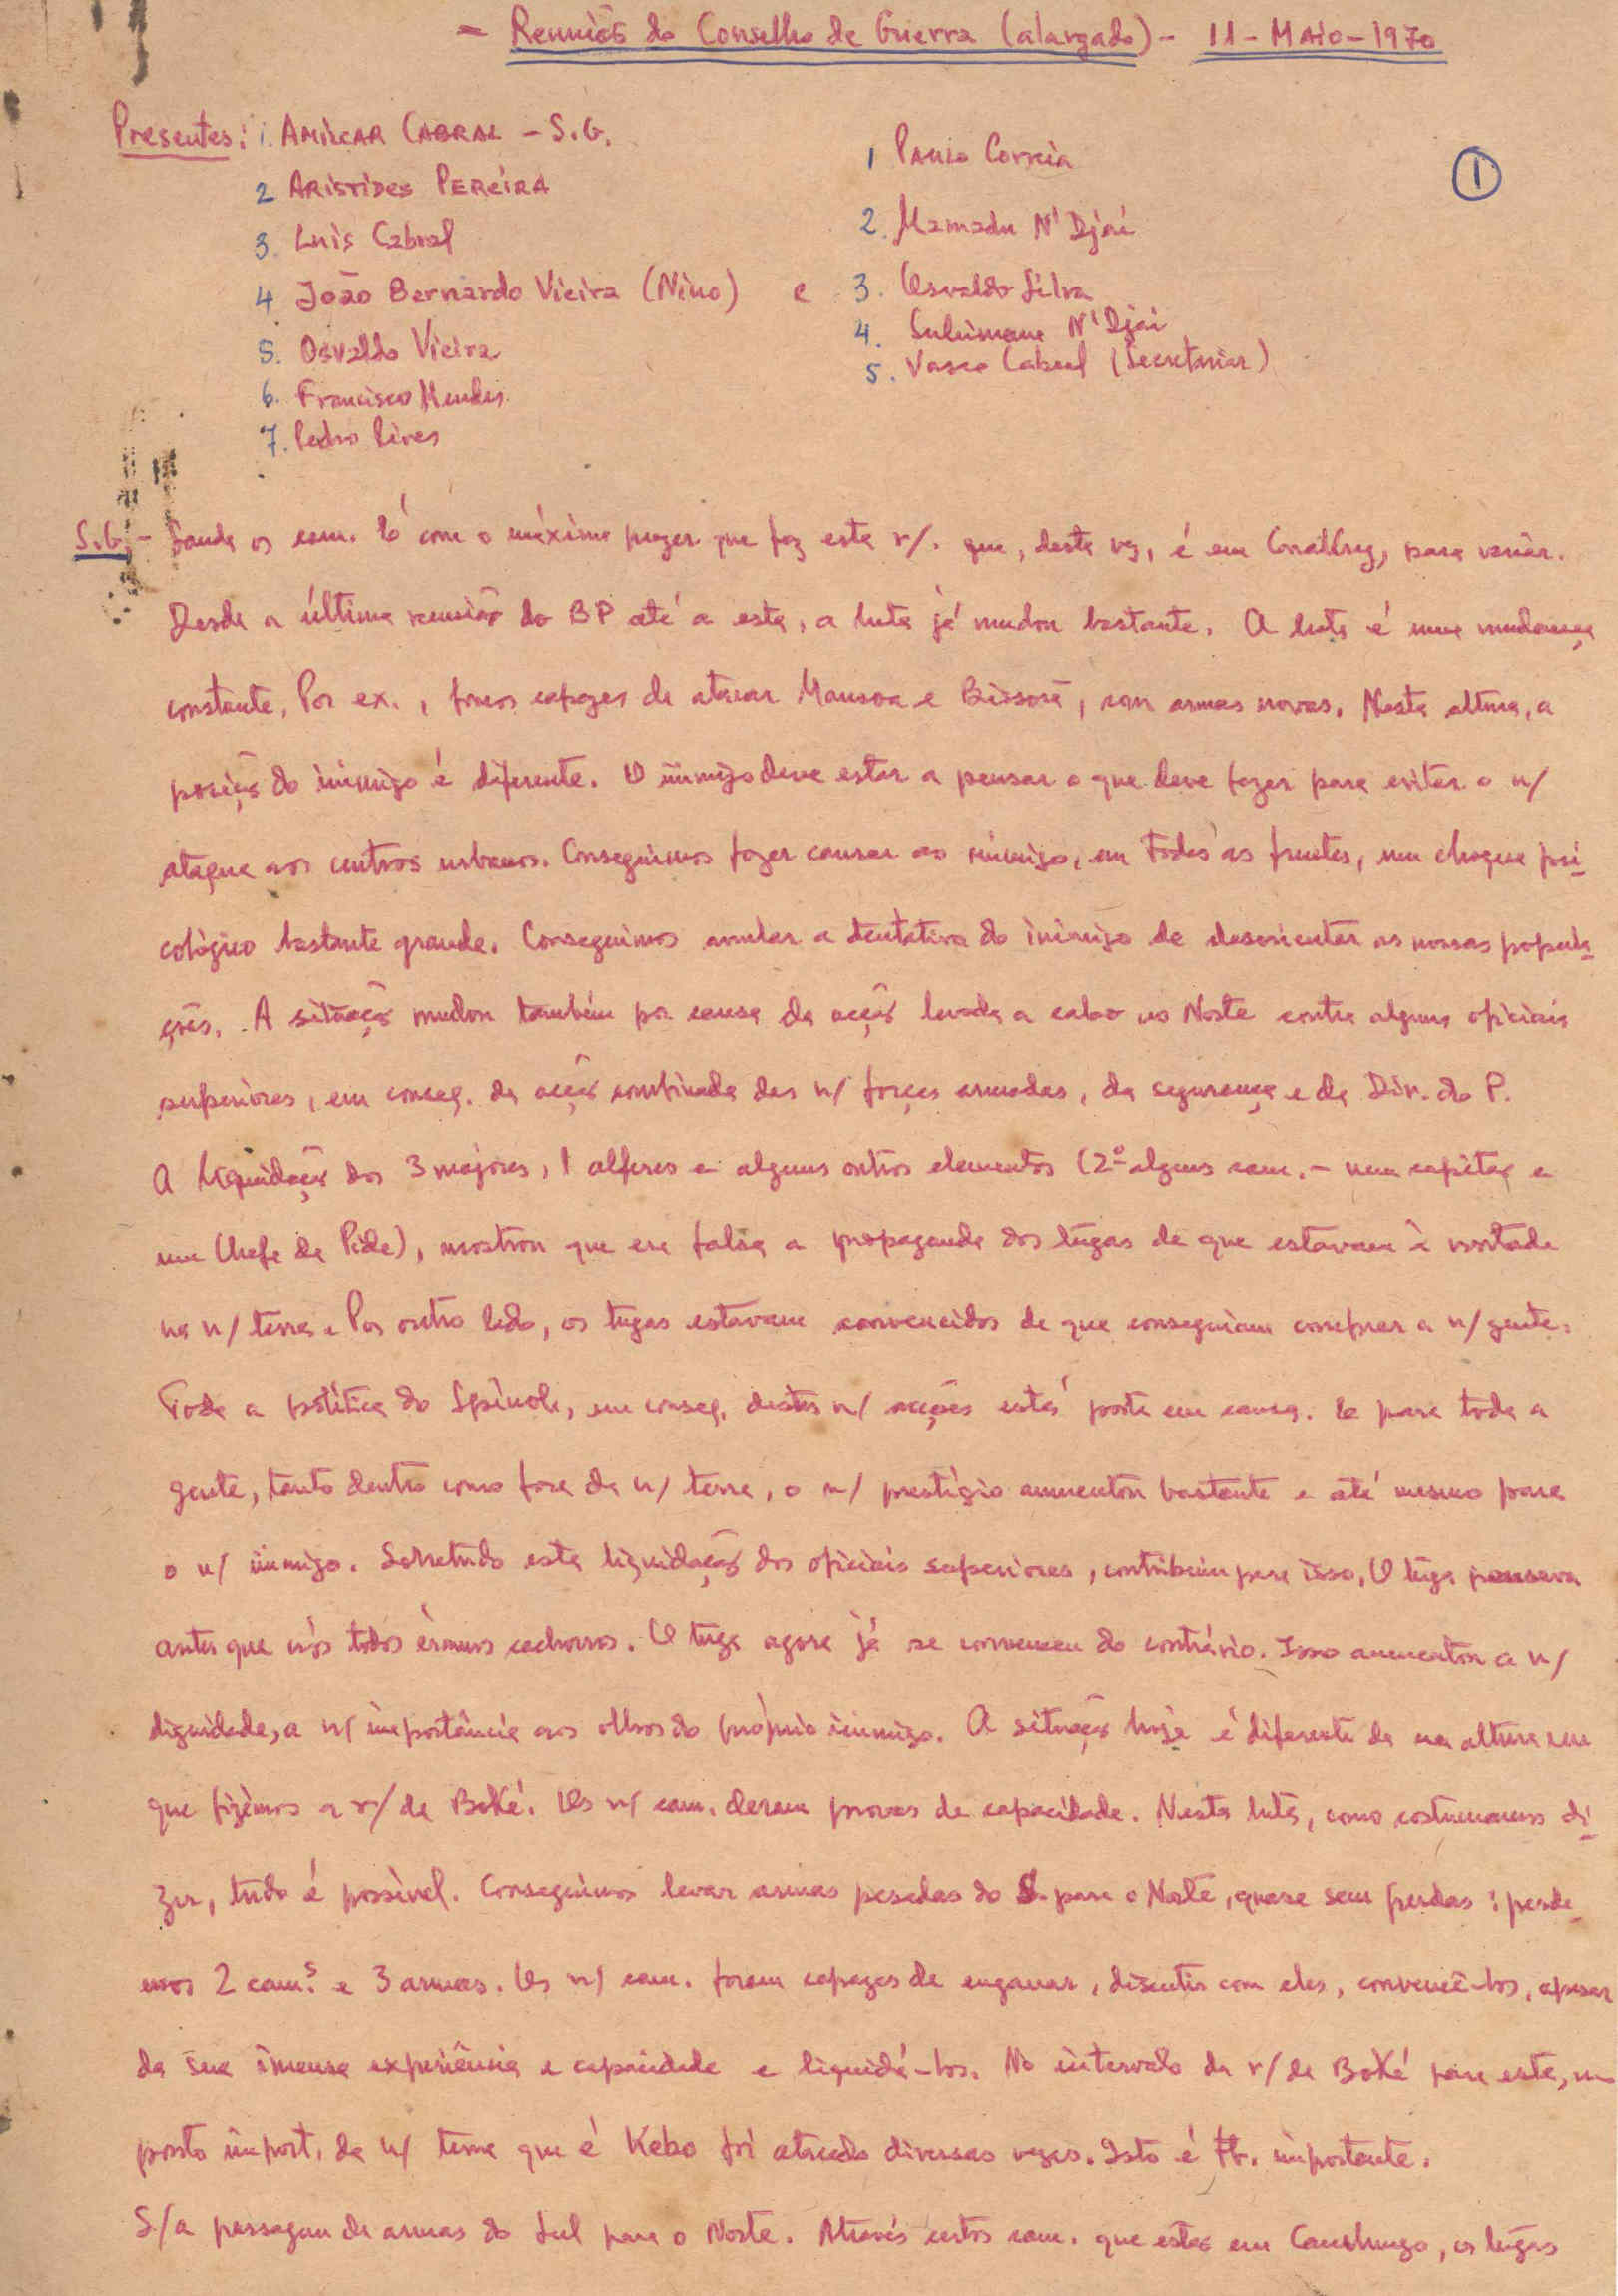 - Reunião do Conselho de Guerra (alargado) - 11 - Maio - 1970
①
Presentes: 1. AMILCAR CABRAL - S.G.
2 ARISTIDES PEREIRA
3. Luis Cabral
4 João Bernardo Vieira (Nino) e
5. Osvaldo Vieira
6. Francisco Mendes
7. Pedro Pires
1 Paulo Correia
2. Mamadu N'Djai
3. Osvaldo Silva
4. Suleimane N'Djai
5. Vasco Cabral (Secretariar)
S.G. - Sauda os cam. É com o máximo prazer que faz esta r/. que, desta vez, é em Conakry, para variar.
Desde a última reunião do BP até a esta, a luta já mudou bastante. A luta é uma mudança
constante. Por ex., fomos capazes de atacar Mansoa e Bissorã, com armas novas. Nesta altura, a
posição do inimigo é diferente. O inimigo deve estar a pensar o que deve fazer para evitar o n/
ataque aos centros urbanos. Conseguimos fazer causar ao inimigo, em todas as frentes, um choque psi-
cológico bastante grande. Conseguimos anular a tentativa do inimigo de desorientar as nossas popula-
ções. A situação mudou também por causa da acção levada a cabo no Norte contra alguns oficiais
superiores, em conseq. da acção combinada das n/ forças armadas, da segurança e da Dir. do P.
A liquidação dos 3 majores, 1 alferes e alguns outros elementos (2º alguns cam. - um capitão e
um Chefe da Pide), mostrou que era falsa a propaganda dos tugas de que estavam à vontade
na n/ terra. Por outro lado, os tugas estavam convencidos de que conseguiam comprar a n/ gente.
Toda a política do Spínola, em conseq. destas n/ acções está posta em causa. E para toda a
gente, tanto dentro como fora da n/ terra, o n/ prestígio aumentou bastante e até mesmo para
o n/ inimigo. Sobretudo esta liquidação dos oficiais superiores, contribuiu para isso. O tuga pensava
antes que nós todos éramos cachorros. O tuga agora já se convenceu do contrário. Isso aumentou a n/
dignidade, a n/ importância aos olhos do próprio inimigo. A situação hoje é diferente da na altura em
que fizémos a r/ de Boké. Os n/ cam. deram provas de capacidade. Nesta luta, como costumamos di-
zer, tudo é possível. Conseguimos levar armas pesadas do S. para o Norte, quase sem perdas: perde-
mos 2 cam.s e 3 armas. Os n/ cam. foram capazes de enganar, discutir com eles, convencê-los, apesar
da sua imensa experiência e capacidade e liquidá-los. No intervalo da r/ de Boké para esta, um
ponto import. da n/ terra que é Kebo foi atacado diversas vezes. Isto é tb. importante.
S/ a passagem de armas do Sul para o Norte. Através certos cam. que estão em Canchungo, os tugas